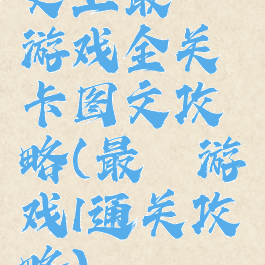 史上最
游戏全关
卡图文攻
略(最 游
戏1通关攻
略)